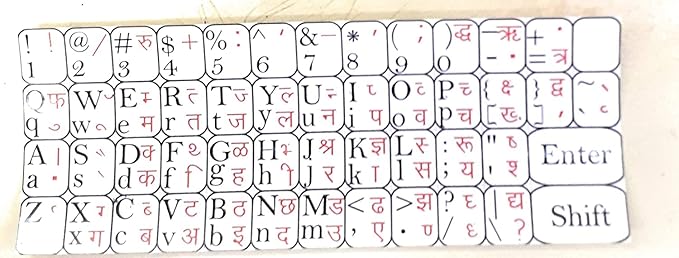 ! ! @ / # रु $ + % : ^ ‘ & - * ’ ( ; ) द्ध — ऋ + .
1 2 3 4 5 6 7 8 9 0 - . = त्र
Q फ W E म् R त् T ज् Y ल् U न् I O व् P च् { क्ष } द्व ~
q w e म r त t ज y ल u न i प o व p च [ ख् ] , `
A | S D क् F G ळ H भ् J श्र K ज्ञ L स् : रू "
a . s d क f ि g ह h ी j र k ा l स ; य ' श् Enter
Z X ग् C ब् V ट B ठ N छ M ड < ढ > झ ? | द्य
x ग c ब v अ b इ n द m उ , ए . / \ ? Shift